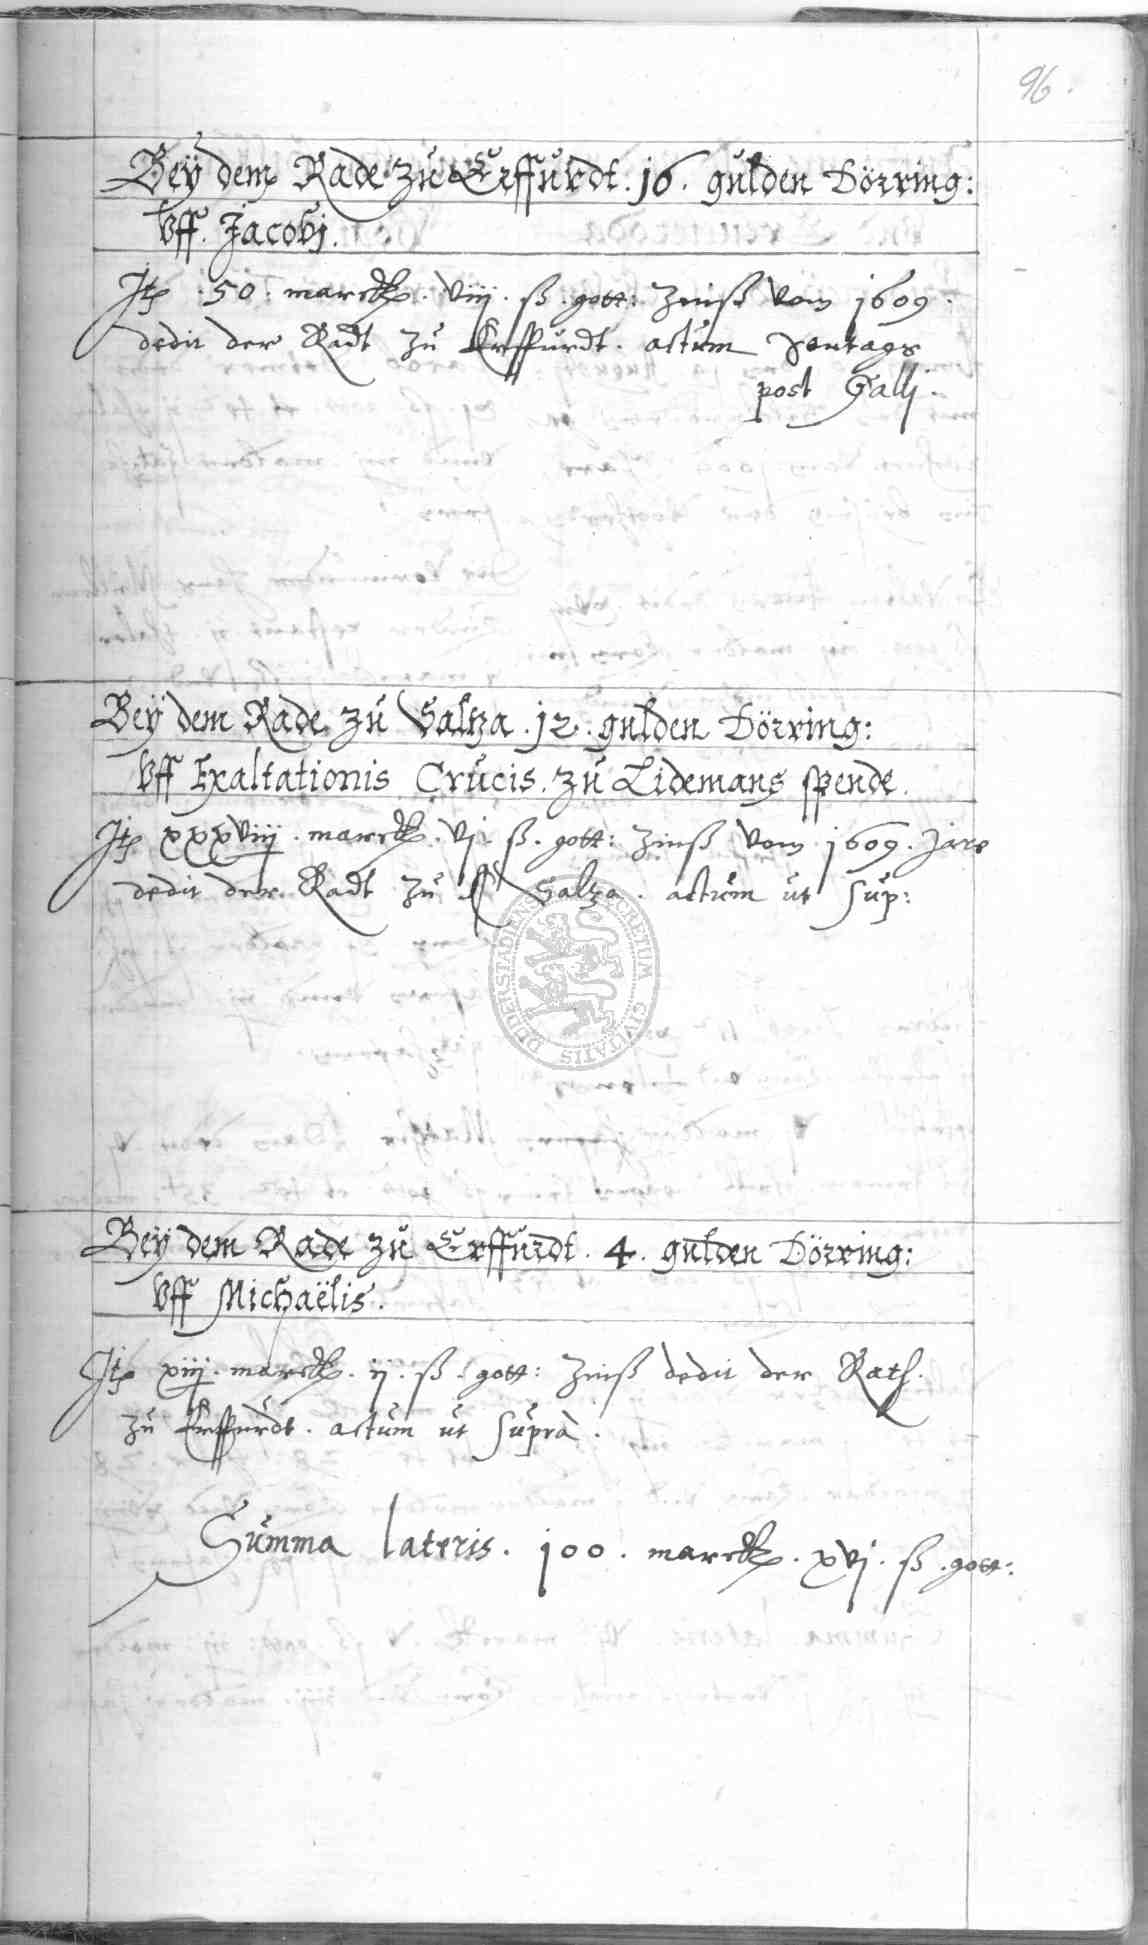 96.
Beÿ dem Rade zu Erffurdt. 16. gulden Dörring:
Vff. Jacobj.
Jtem .50. marck. viij. ß. gott: Zinß vom 1609.
dedit der Radt zu Erffurdt. actum Sontags
post Galli.
Beÿ dem Rade zu Saltza .12. gulden Dörring:
Vff Exaltationis Crucis. zu Lidemans spende.
Jtem xxxviij. marck. vj. ß. gott: Zinß vom 1609. Jare
dedit der Radt zu Saltza. actum ut sup:
DUDERSTADIENS SECRETUM CIVITATIS
Beÿ dem Rade zu Erffurdt. 4. gulden Dörring:
Vff Michaëlis.
Jtem xiij. marck. ij. ß. gott: Zinß dedit der Rath.
zu Erffurdt. actum ut suprà.
Summa lateris. 100. marck. xvj. ß. gott: